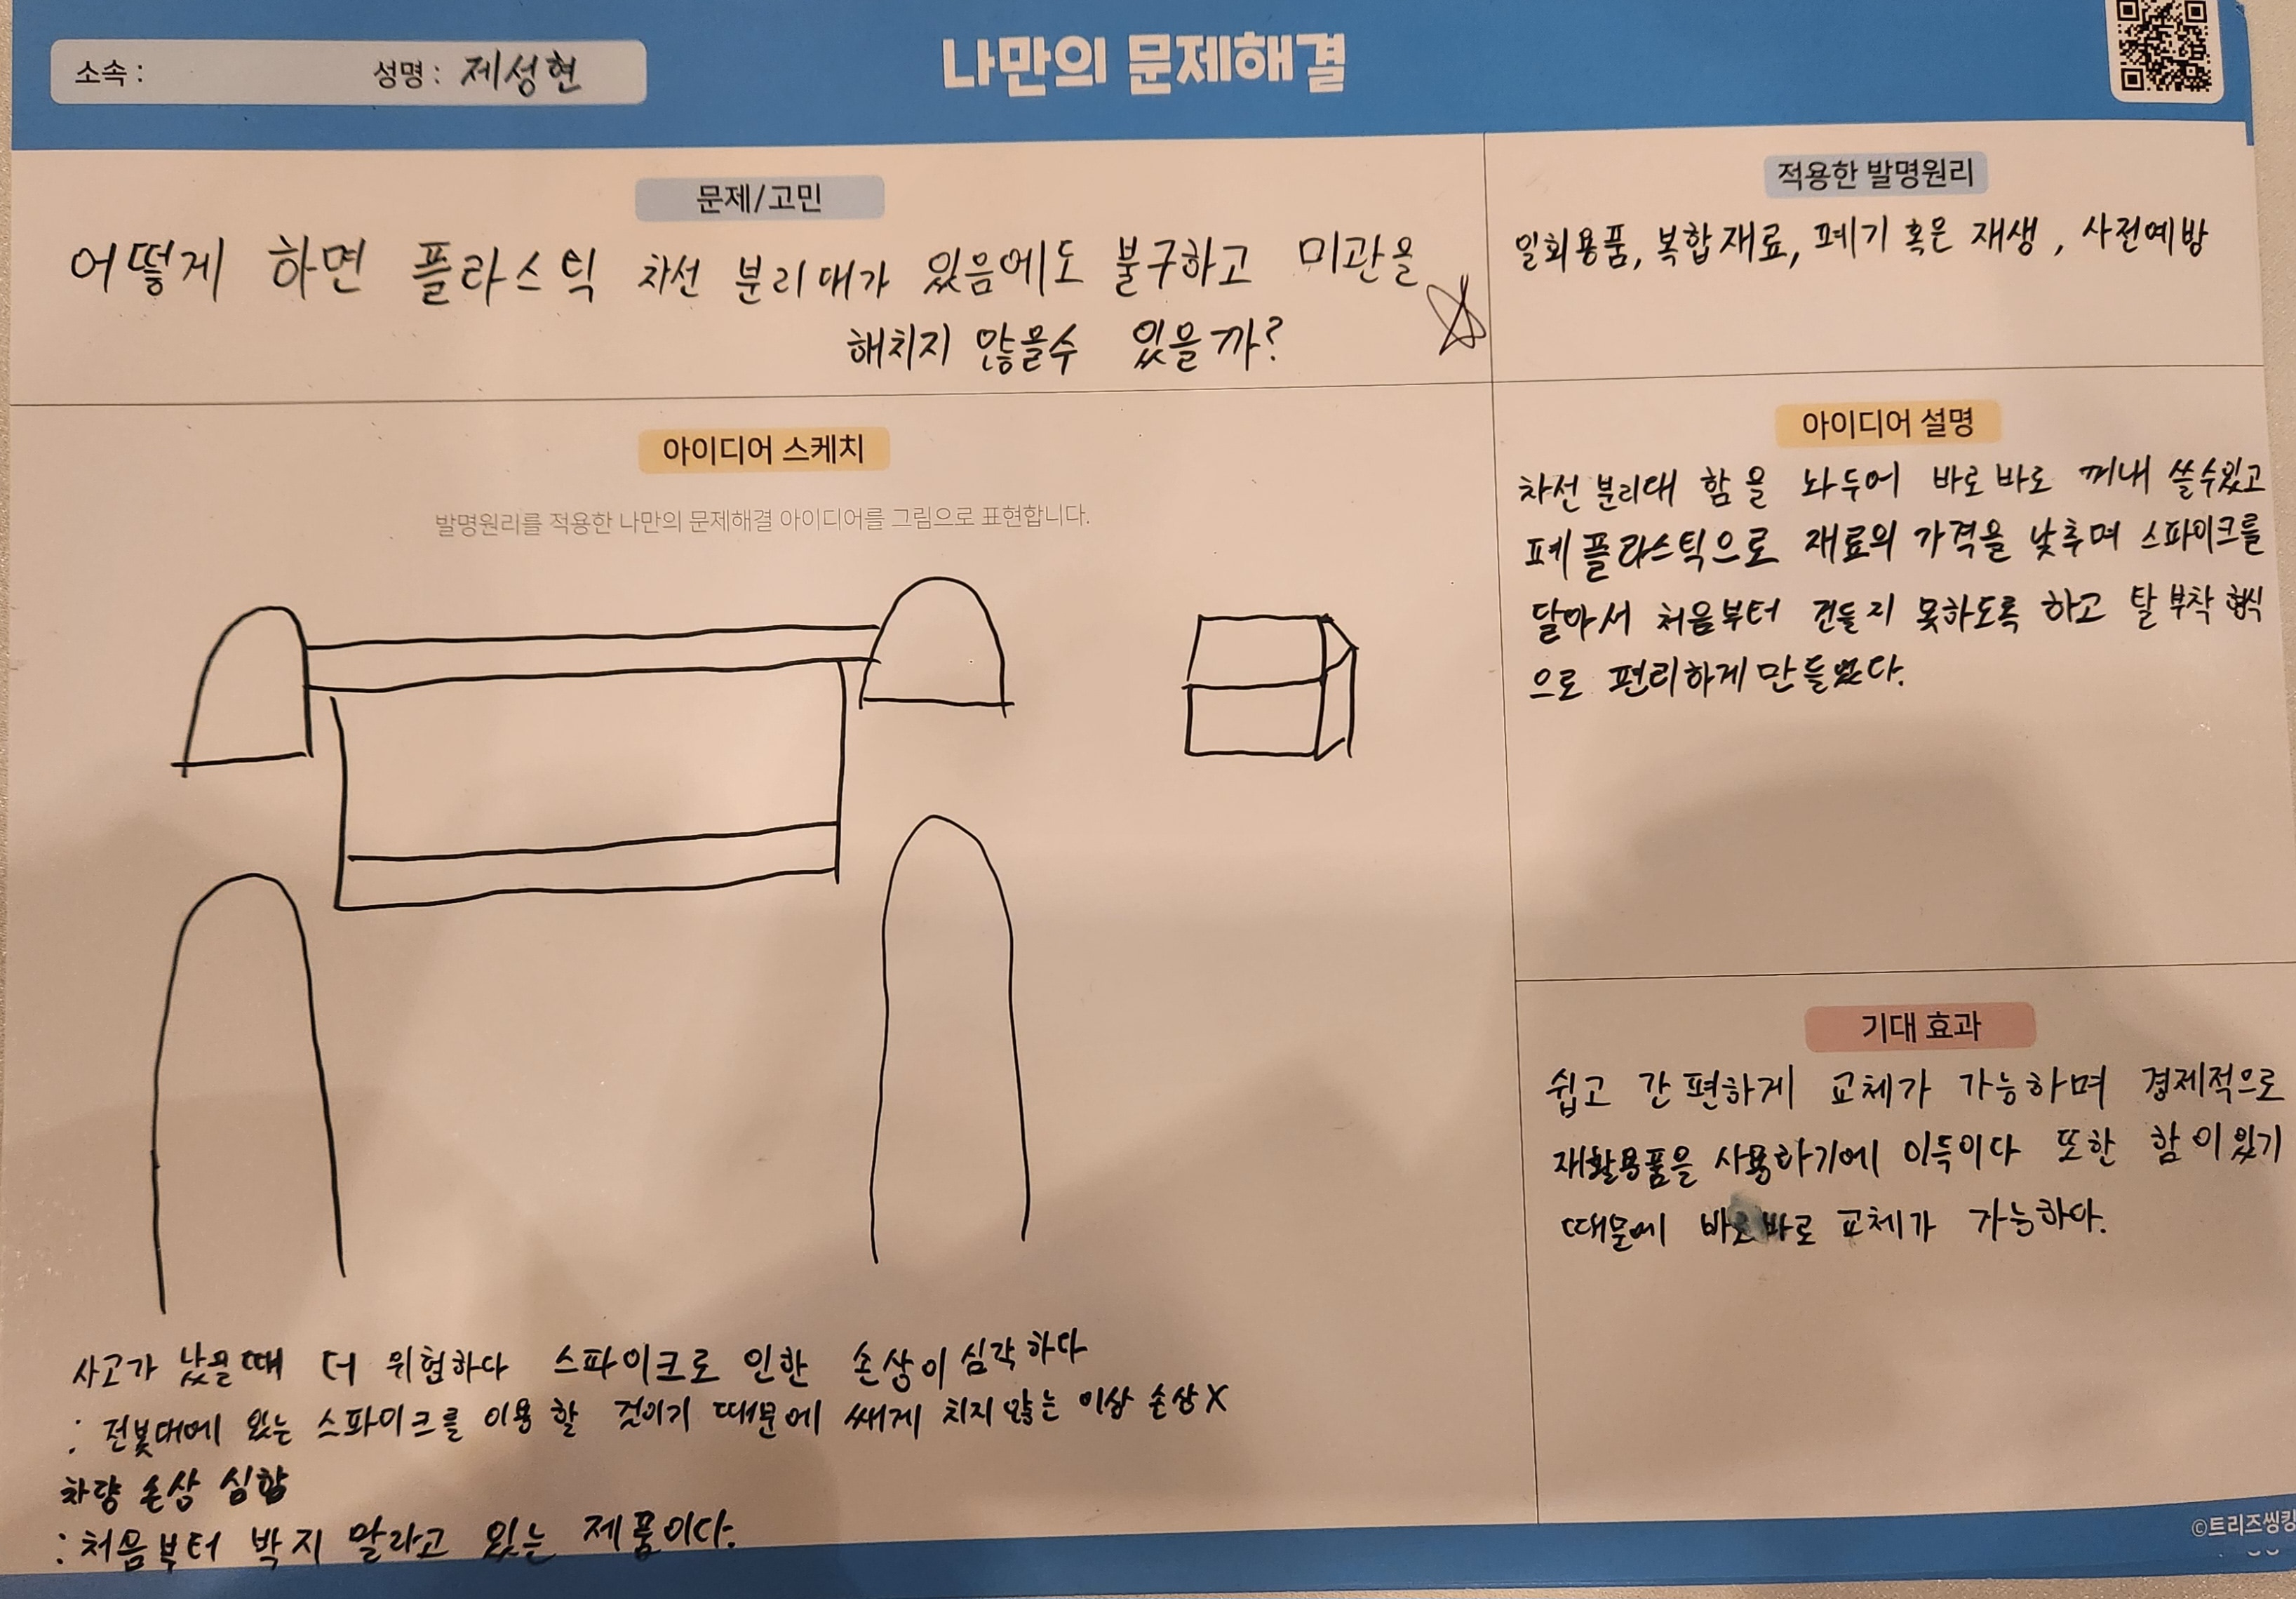 소속 : 성명 : 제성현
나만의 문제해결
문제/고민
어떻게 하면 플라스틱 차선 분리대가 있음에도 불구하고 미관을
해치지 않을수 있을까?
적용한 발명원리
일회용품, 복합재료, 폐기 혹은 재생, 사전예방
아이디어 스케치
발명원리를 적용한 나만의 문제해결 아이디어를 그림으로 표현합니다.
사고가 났을때 더 위험하다 스파이크로 인한 손상이 심각하다
: 전봇대에 있는 스파이크를 이용 할 것이기 때문에 쌔게 치지 않는 이상 손상X
차량 손상 심함
: 처음부터 박지 말라고 있는 제품이다.
아이디어 설명
차선 분리대 함을 놔두어 바로바로 꺼내 쓸수있고
폐플라스틱으로 재료의 가격을 낮추며 스파이크를
달아서 처음부터 건들지 못하도록 하고 탈부착 형식
으로 편리하게 만들었다.
기대 효과
쉽고 간편하게 교체가 가능하며 경제적으로
재활용품을 사용하기에 이득이다 또한 함이 있기
때문에 바로바로 교체가 가능하다.
©트리즈씽킹